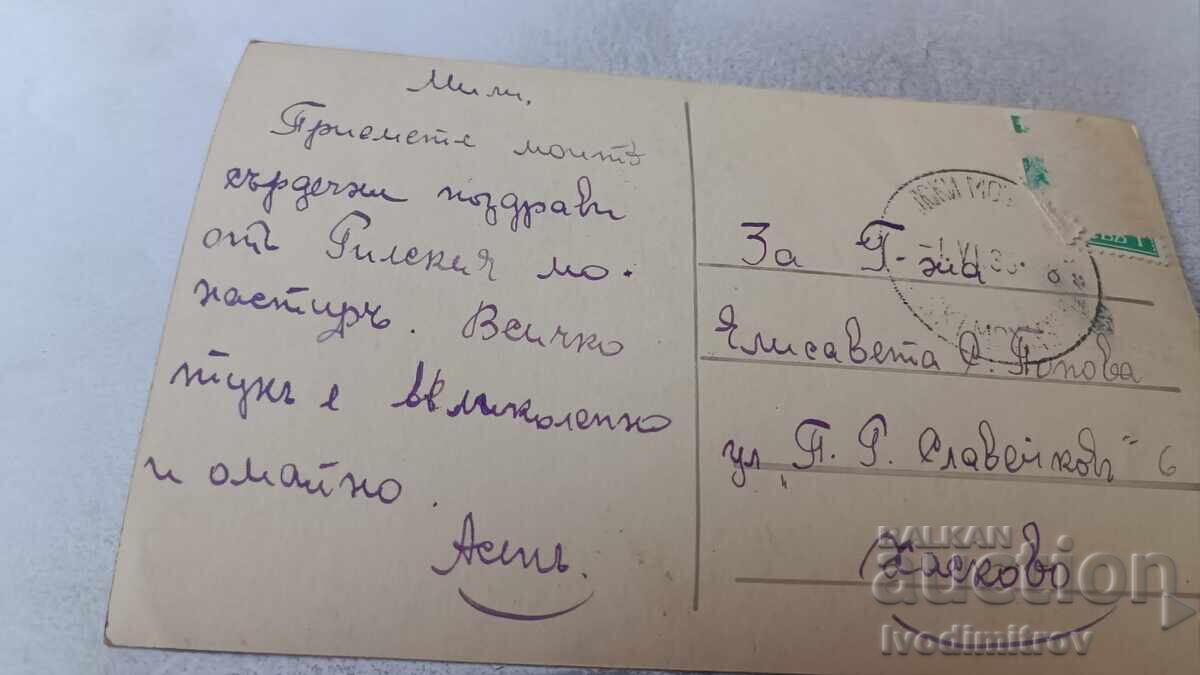 Мили,
Приемете моитѣ
сърдечни поздрави
отъ Рилския мо-
настиръ. Всичко
тукъ е великолепно
и омайно.
Асенъ.
За Г-ца
Елисавета С. Попова
ул "П. Р. Славейковъ" 6
Хасково
BALKAN
auction
Ivodimitrov